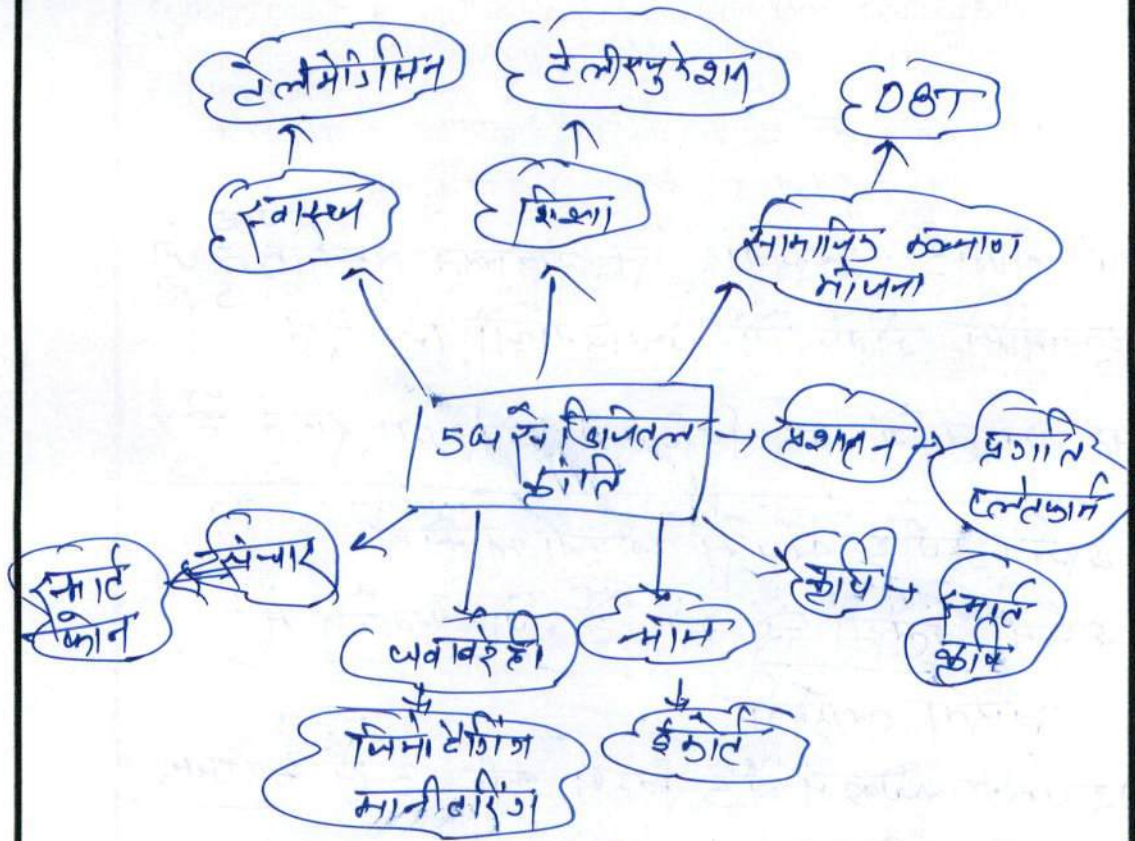 टेलीमेडिसिन
टेलीएजुकेशन
DBT
स्वास्थ्य
शिक्षा
सामाजिक कल्याण
योजना
5G एवं डिजिटल
क्रांति
प्रशासन
प्रगति
प्लेटफार्म
संचार
स्मार्ट
फोन
कृषि
स्मार्ट
कृषि
जवाबदेही
न्याय
जियो टैगिंग
मानीटरिंग
ईकोर्ट